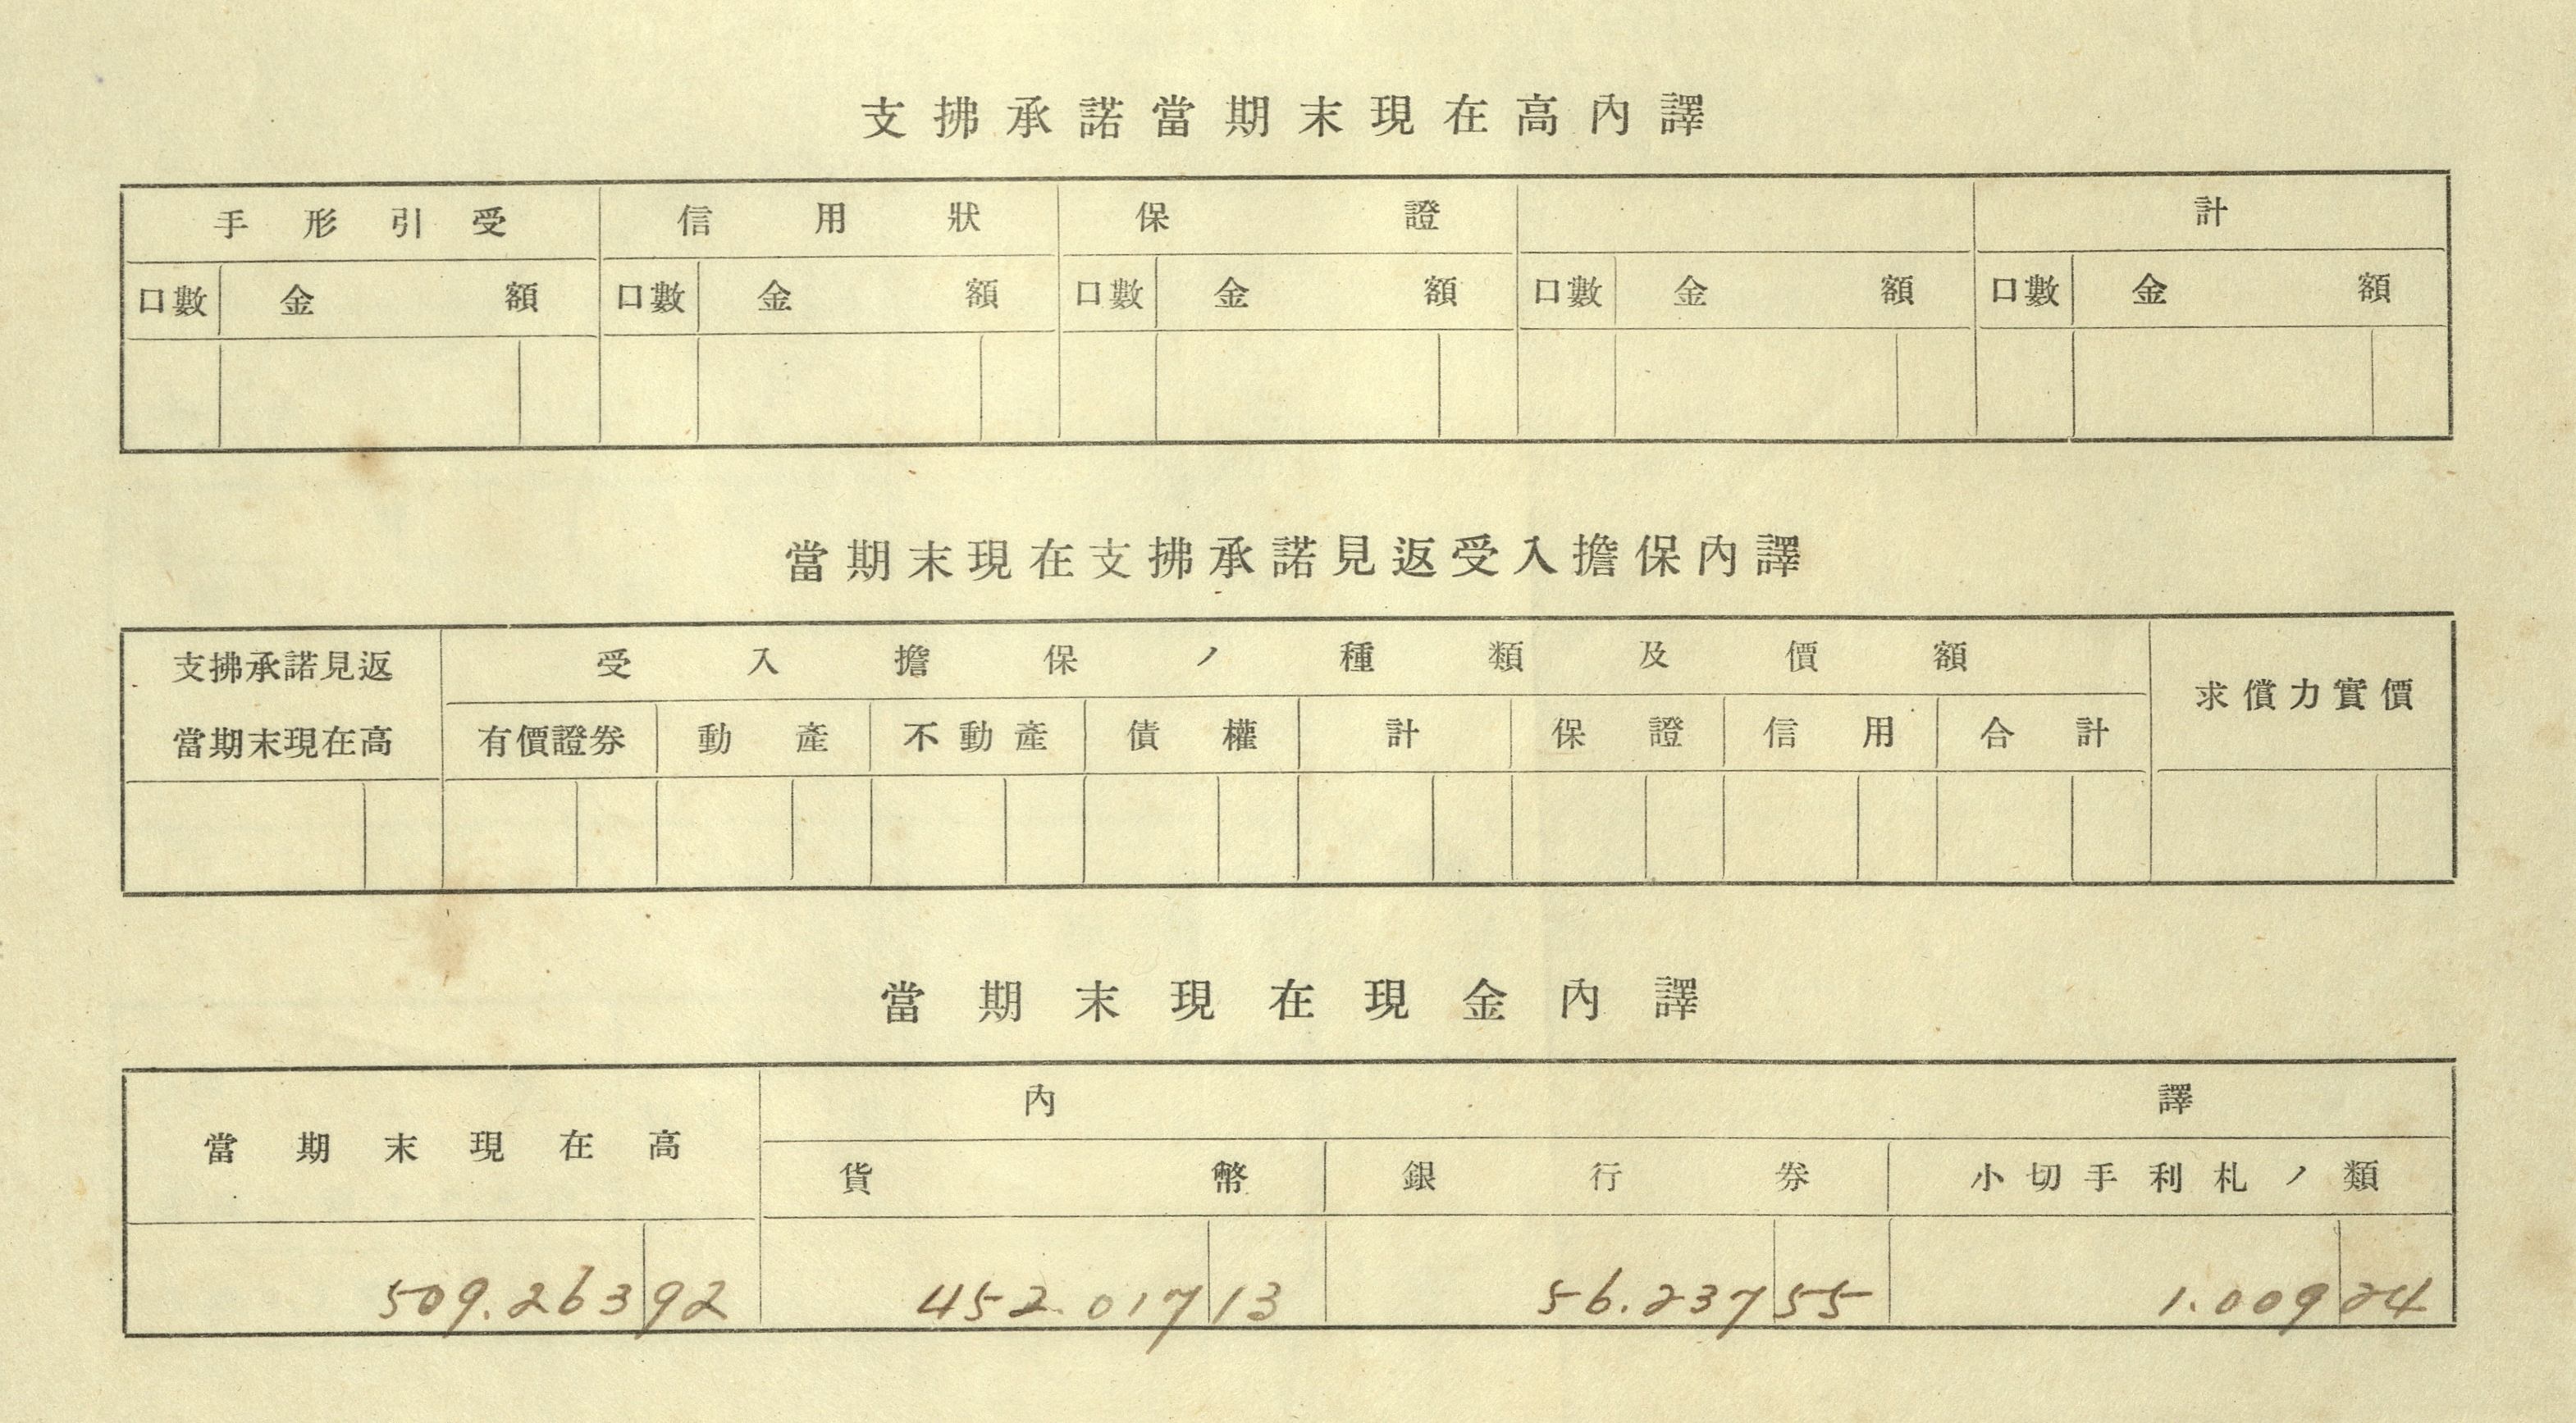 支拂承諾當期末現在高內譯
手形引受 信用狀 保證 計
口數 金額 口數 金額 口數 金額 口數 金額 口數 金額
當期末現在支拂承諾見返受入擔保內譯
支拂承諾見返當期末現在高 受入擔保ノ種類及價額 求償力實價
有價證券 動產 不動產 債權 計 保證 信用 合計
當期末現在現金內譯
當期末現在高 內譯
貨幣 銀行券 小切手利札ノ類
509.263 92 452.017 13 56.237 55 1.009 24